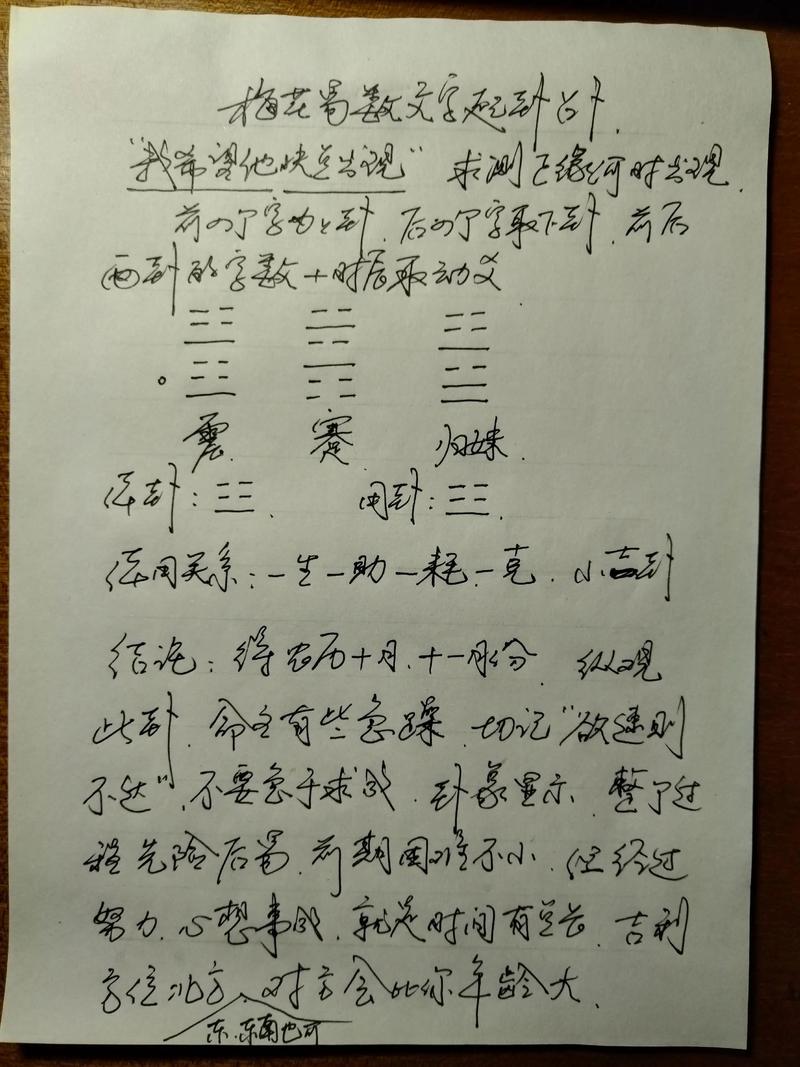 梅花易数文字起卦占卜.
"我希望他快点出现" 求测正缘何时出现.
前四个字为上卦.后四个字取下卦.前后
两卦的字数+时辰取动爻
震. 蹇. 归妹.
体卦: 用卦:
体用关系:一生一助一耗.一克. 小吉卦
结论:得农历十月、十一月份. 纵观
此卦.命主有些急躁.切记"欲速则
不达".不要急于求成.卦象显示.整个过
程先险后易.前期困难不小.但经过
努力.心想事成.就是时间有点长.吉利
方位北方.对方会比你年龄大.
东.东南也可